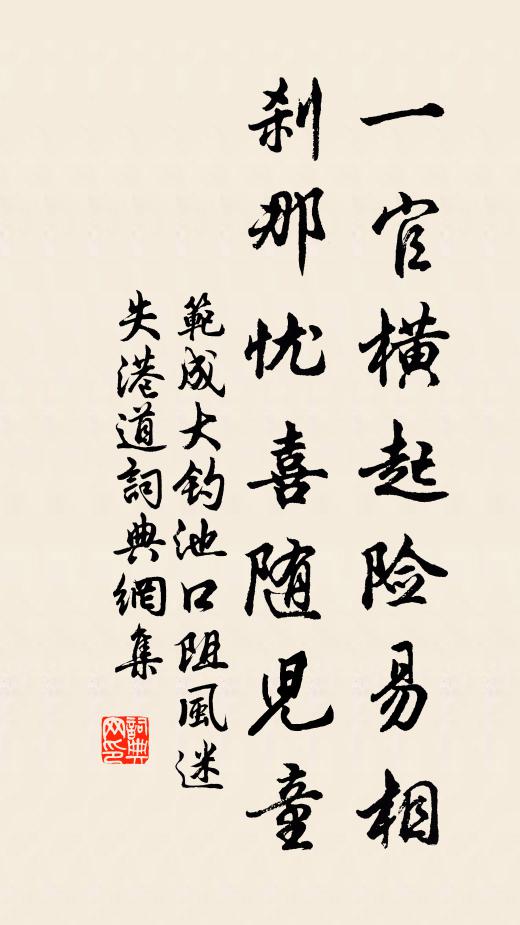 一官横起险易相
刹那忧喜随児童
範成大钓池口阻風迷
失港道詞典網集
詞典
网印